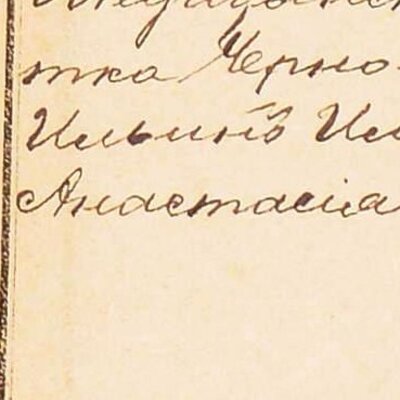 тка Черно-
Ильинъ Ил
Анастасіа